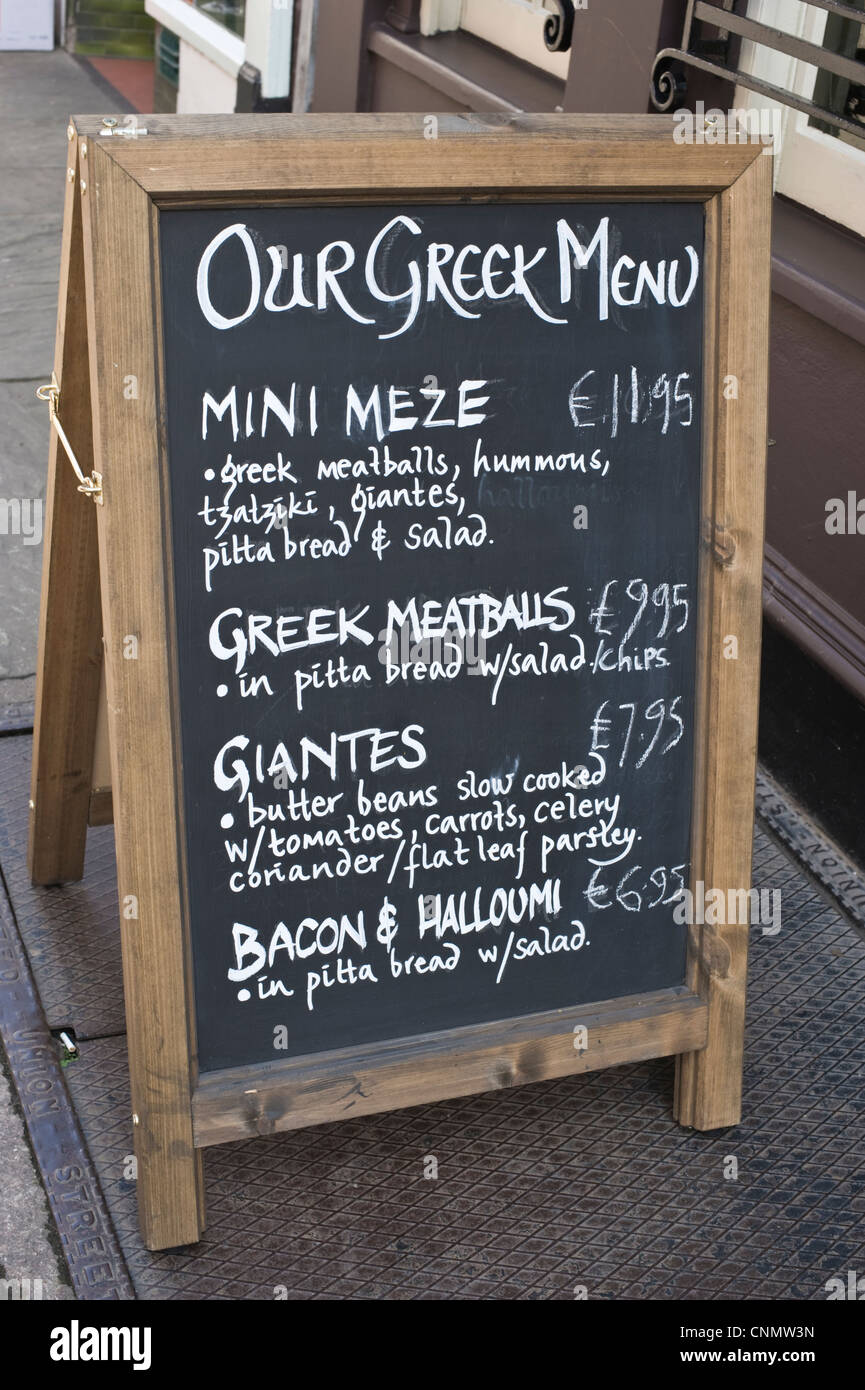 OUR GREEK MENU
MINI MEZE €11.95
• greek meatballs, hummous,
tzatziki, giantes,
pitta bread & salad.
GREEK MEATBALLS €9.95
• in pitta bread w/salad/chips
GIANTES €7.95
• butter beans slow cooked
w/tomatoes, carrots, celery
coriander/flat leaf parsley.
BACON & HALLOUMI €6.95
• in pitta bread w/salad.
UNION STREET
UNION
alamy
Image ID: CNMW3N
www.alamy.com